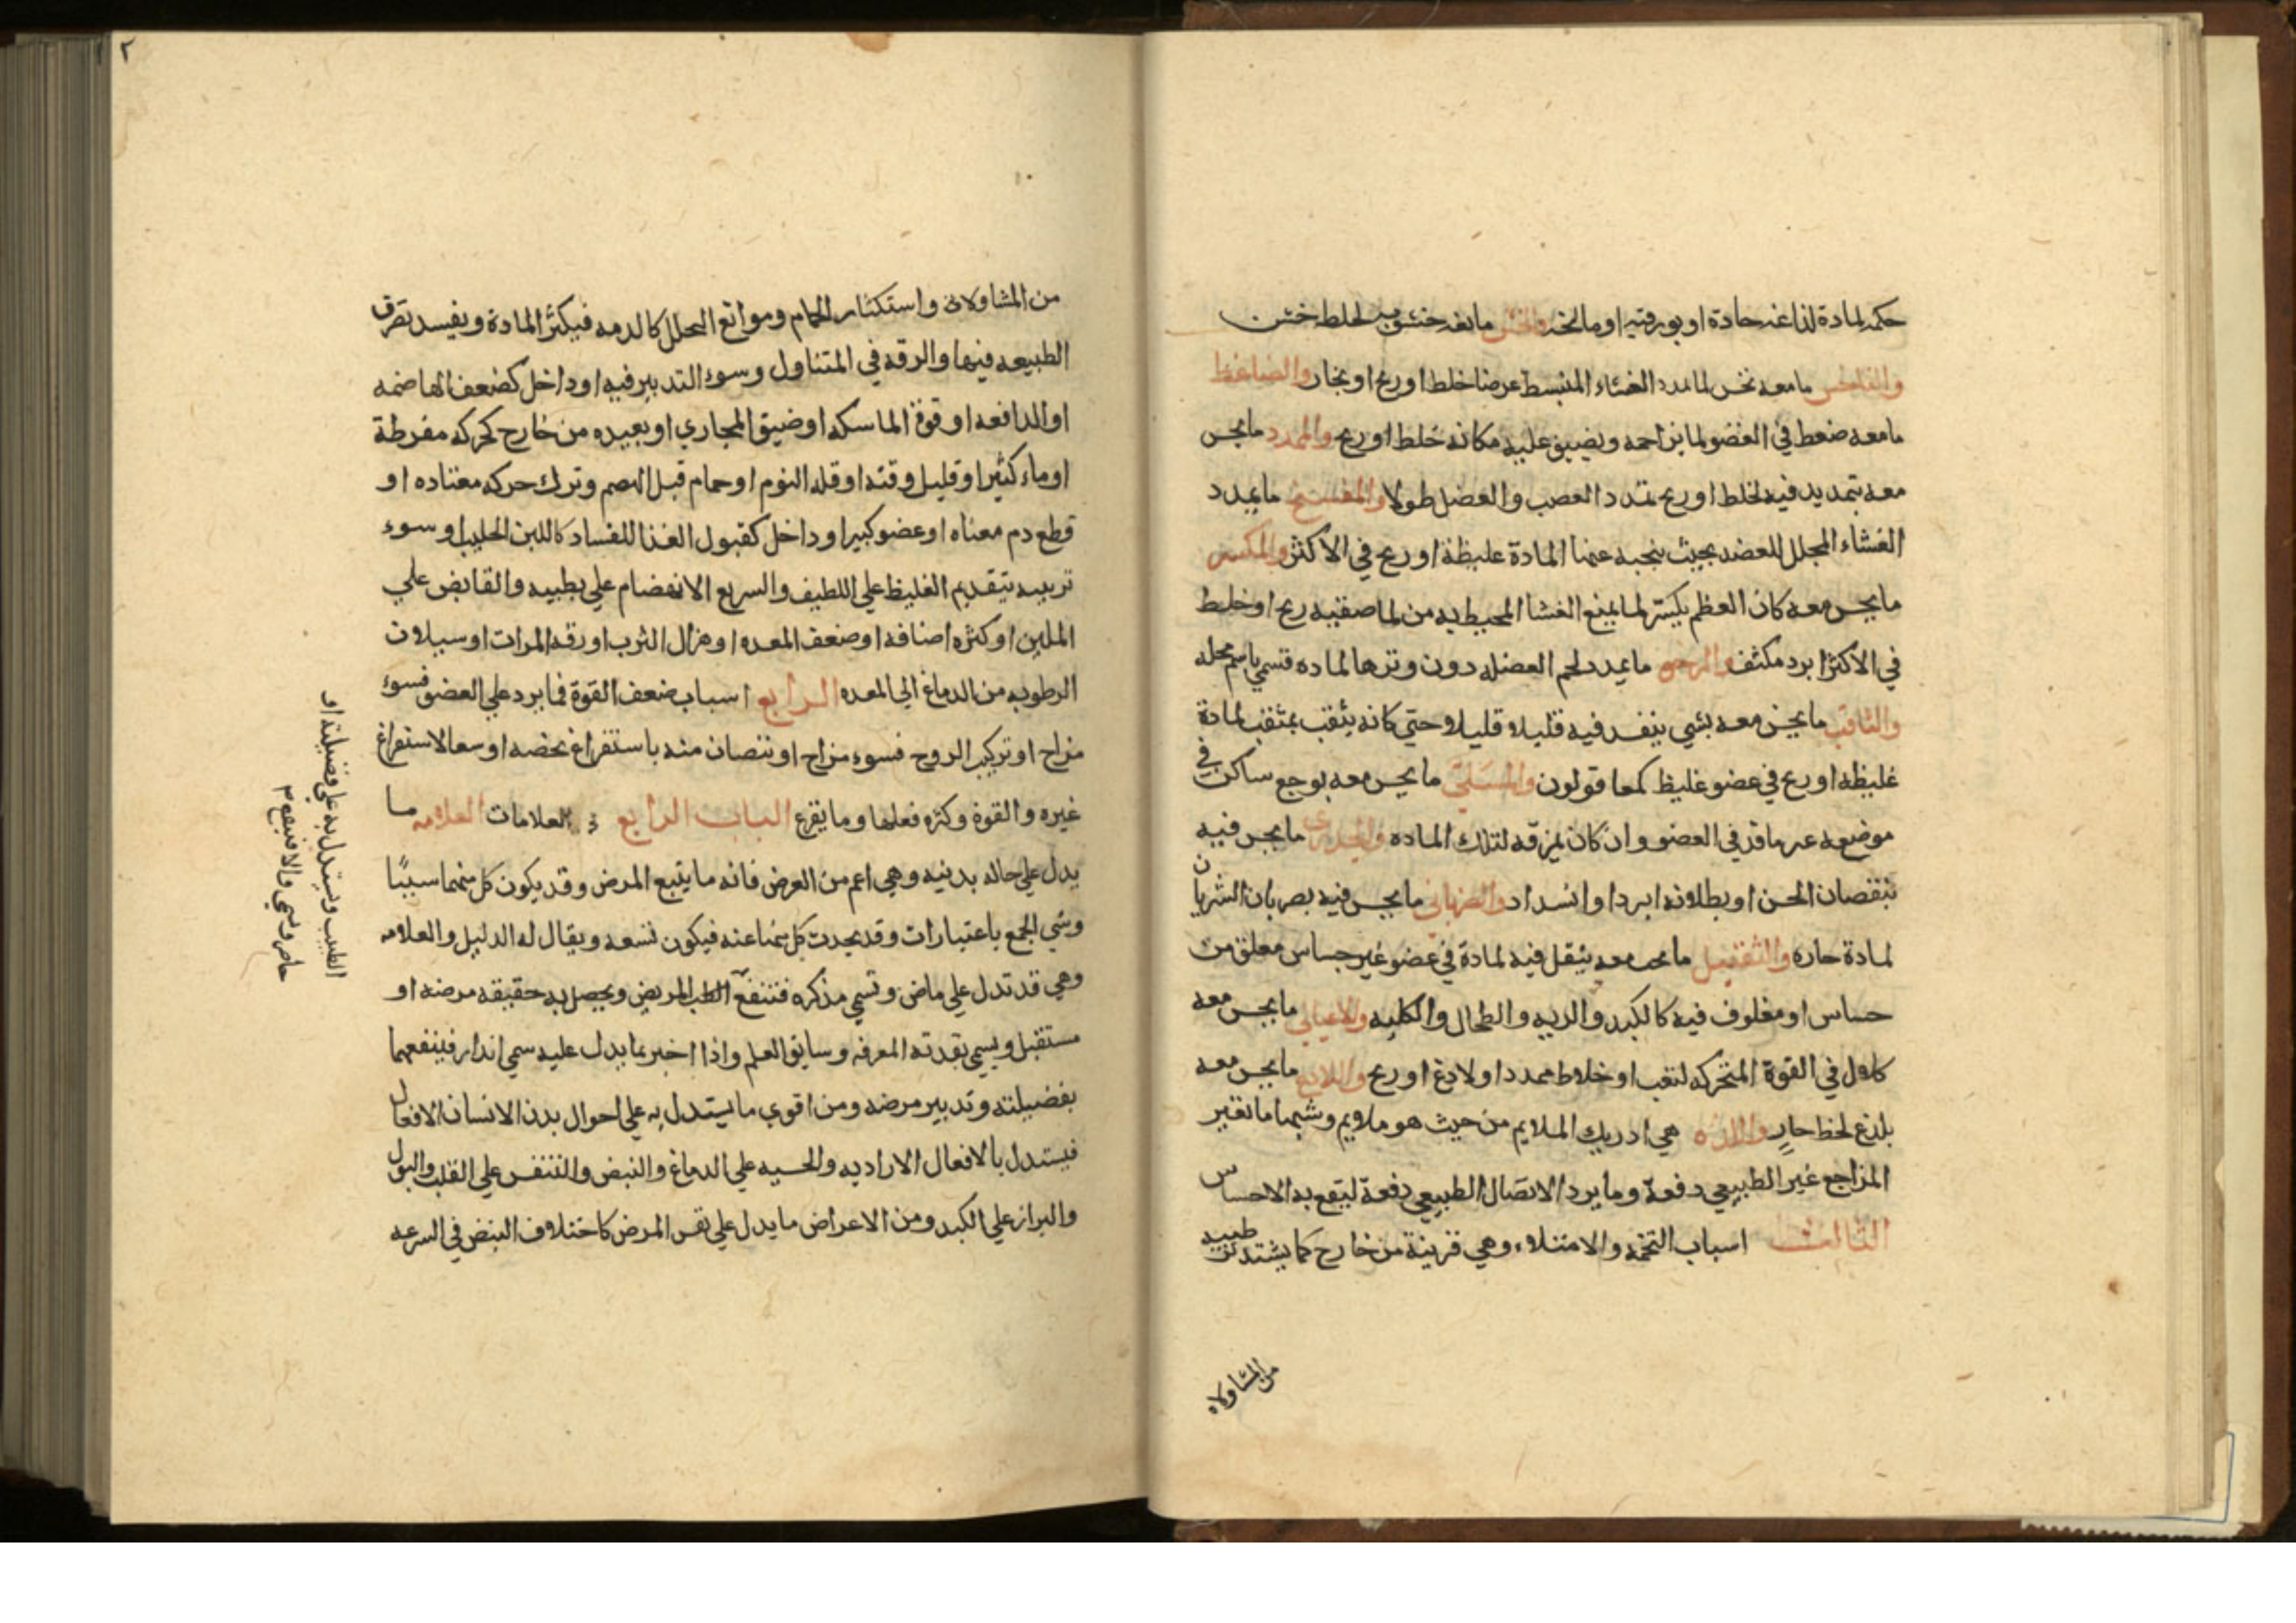 حكة لمادة لذاعة حادة او بورقية او مالحة والخشن ما معه خشونة لخلط خشن
والناخس ما معه نخس لما يمدد الغشاء المنبسط عرضا خلط او ريح او بخار والضاغط
ما معه ضغط في العضو لما يزاحمه ويضيق عليه مكانه خلط او ريح والممدد ما يحس
معه بتمديد فيه لخلط او ريح تمدد العصب والعضل طولا والمفسخ ما يمدد
الغشاء المجلل للعضد بحيث ينجبه عنها المادة غليظة او ريح في الاكثر والمكسر
ما يحس معه كان العظم يكسر لما يمنع الغشا المحيط به من لما صقيه ريح او خلط
في الاكثر ابرد مكثف والرخو ما يمدد لحم العضلة دون وترها لماده فتسمي باسم محله
والثاقب ما يحس معه بشي ينفد فيه قليلا قليلا حتي كانه يثقب بمثقب لمادة
غليظه او ريح في عضو غليظ كمعا قولون والمسلي ما يحس معه بوجع ساكن في
موضعه عر ما قد في العضو وان كان يمزقه لتلك الماده والخدري ما يحس فيه
بنقصان الحس او بطلانه ابرد او انسداد والضرباني ما يحس فيه بضربان الشريان
لمادة حاره والثقيل ما يحس معه بثقل فيه لمادة في عضو غير حساس معلق من
حساس او مغلوف فيه كالكبد والريه والطحال والكليه والاعيائي ما يحس معه
كلال في القوة المتحركه لتعب او خلاط ممدد او لادغ او ريح واللادغ ما يحس معه
بلدغ لخط حار واللذه هي ادريك الملايم من حيث هو ملايم وشبها ما تغير
المزاج غير الطبيعي دفعة وما يرد الاتصال الطبيعي دفعة ليقع به الاحساس
الثالث اسباب التخمه والامتلاء وهي قرينة من خارج كما يشتد ترطيبه
من المشاولاه
٢
من المشاولات واستكثار الحمام وموانع التحلل كالدمه فيكثر المادة ويفسد تصرف
الطبيعه فيها والرقه في المتناول وسوء التدبير فيه او داخل كضعف الهاضمه
او الدافعه او قوة الماسكه او ضيق المجاري او بعيده من خارج كحركه مفرطة
او ماء كثير او قليل وقته او قله النوم او حمام قبل الهضم وترك حركه معتاده او
قطع دم معتاه او عضو كبير او داخل كقبول الغذا للفساد كاللبن الحليب او سوء
تربيه بتقديم الغليظ علي اللطيف والسريع الانهضام علي بطييه والقابض علي
الملين او كثره اصنافه او ضعف المعده او هزال الثرب او رقه المرات او سيلان
الرطوبه من الدماغ الي المعده الرابع اسباب ضعف القوة فما يرد علي العضو فسوء
مزاج او تركيب الروح فسوء مزاج او نقصان منه باستفراغ يخصه او سعا لاستفراغ
غيره والقوة وكثره فعلها وما يقرع الباب الرابع في العلامات العلامه ما
يدل علي حاله بدنيه وهي اعم من العرض فانه ما يتبع المرض وقد يكون كل منهما سببًا
وشي الجمع باعتبارات وقد يحدث كل منها عنه فيكون نسعه ويقال له الدليل والعلامه
وهي قد تدل علي ماض وتسمي مذكره فتنفع الطب المريض ويحصل به حقيقه مرضه او
مستقبل ويسمي تقدمة المعرفه وسابق العلم واذا اخبر بما يدل عليه سمي انذار فينفعهما
بفضيلته وتدبير مرضه ومن اقوي ما يستدل به علي احوال بدن الانسان الافعال
فيستدل بالافعال الاراديه والحسيه علي الدماغ والنبض والتنفس علي القلب والبول
والبراز علي الكبد ومن الاعراض ما يدل علي نفس المرض كاختلاف النبض في السرعه
الطبيب ويستدل به علي فضيلته او
حاضر ويسمي والا فينفع ٣